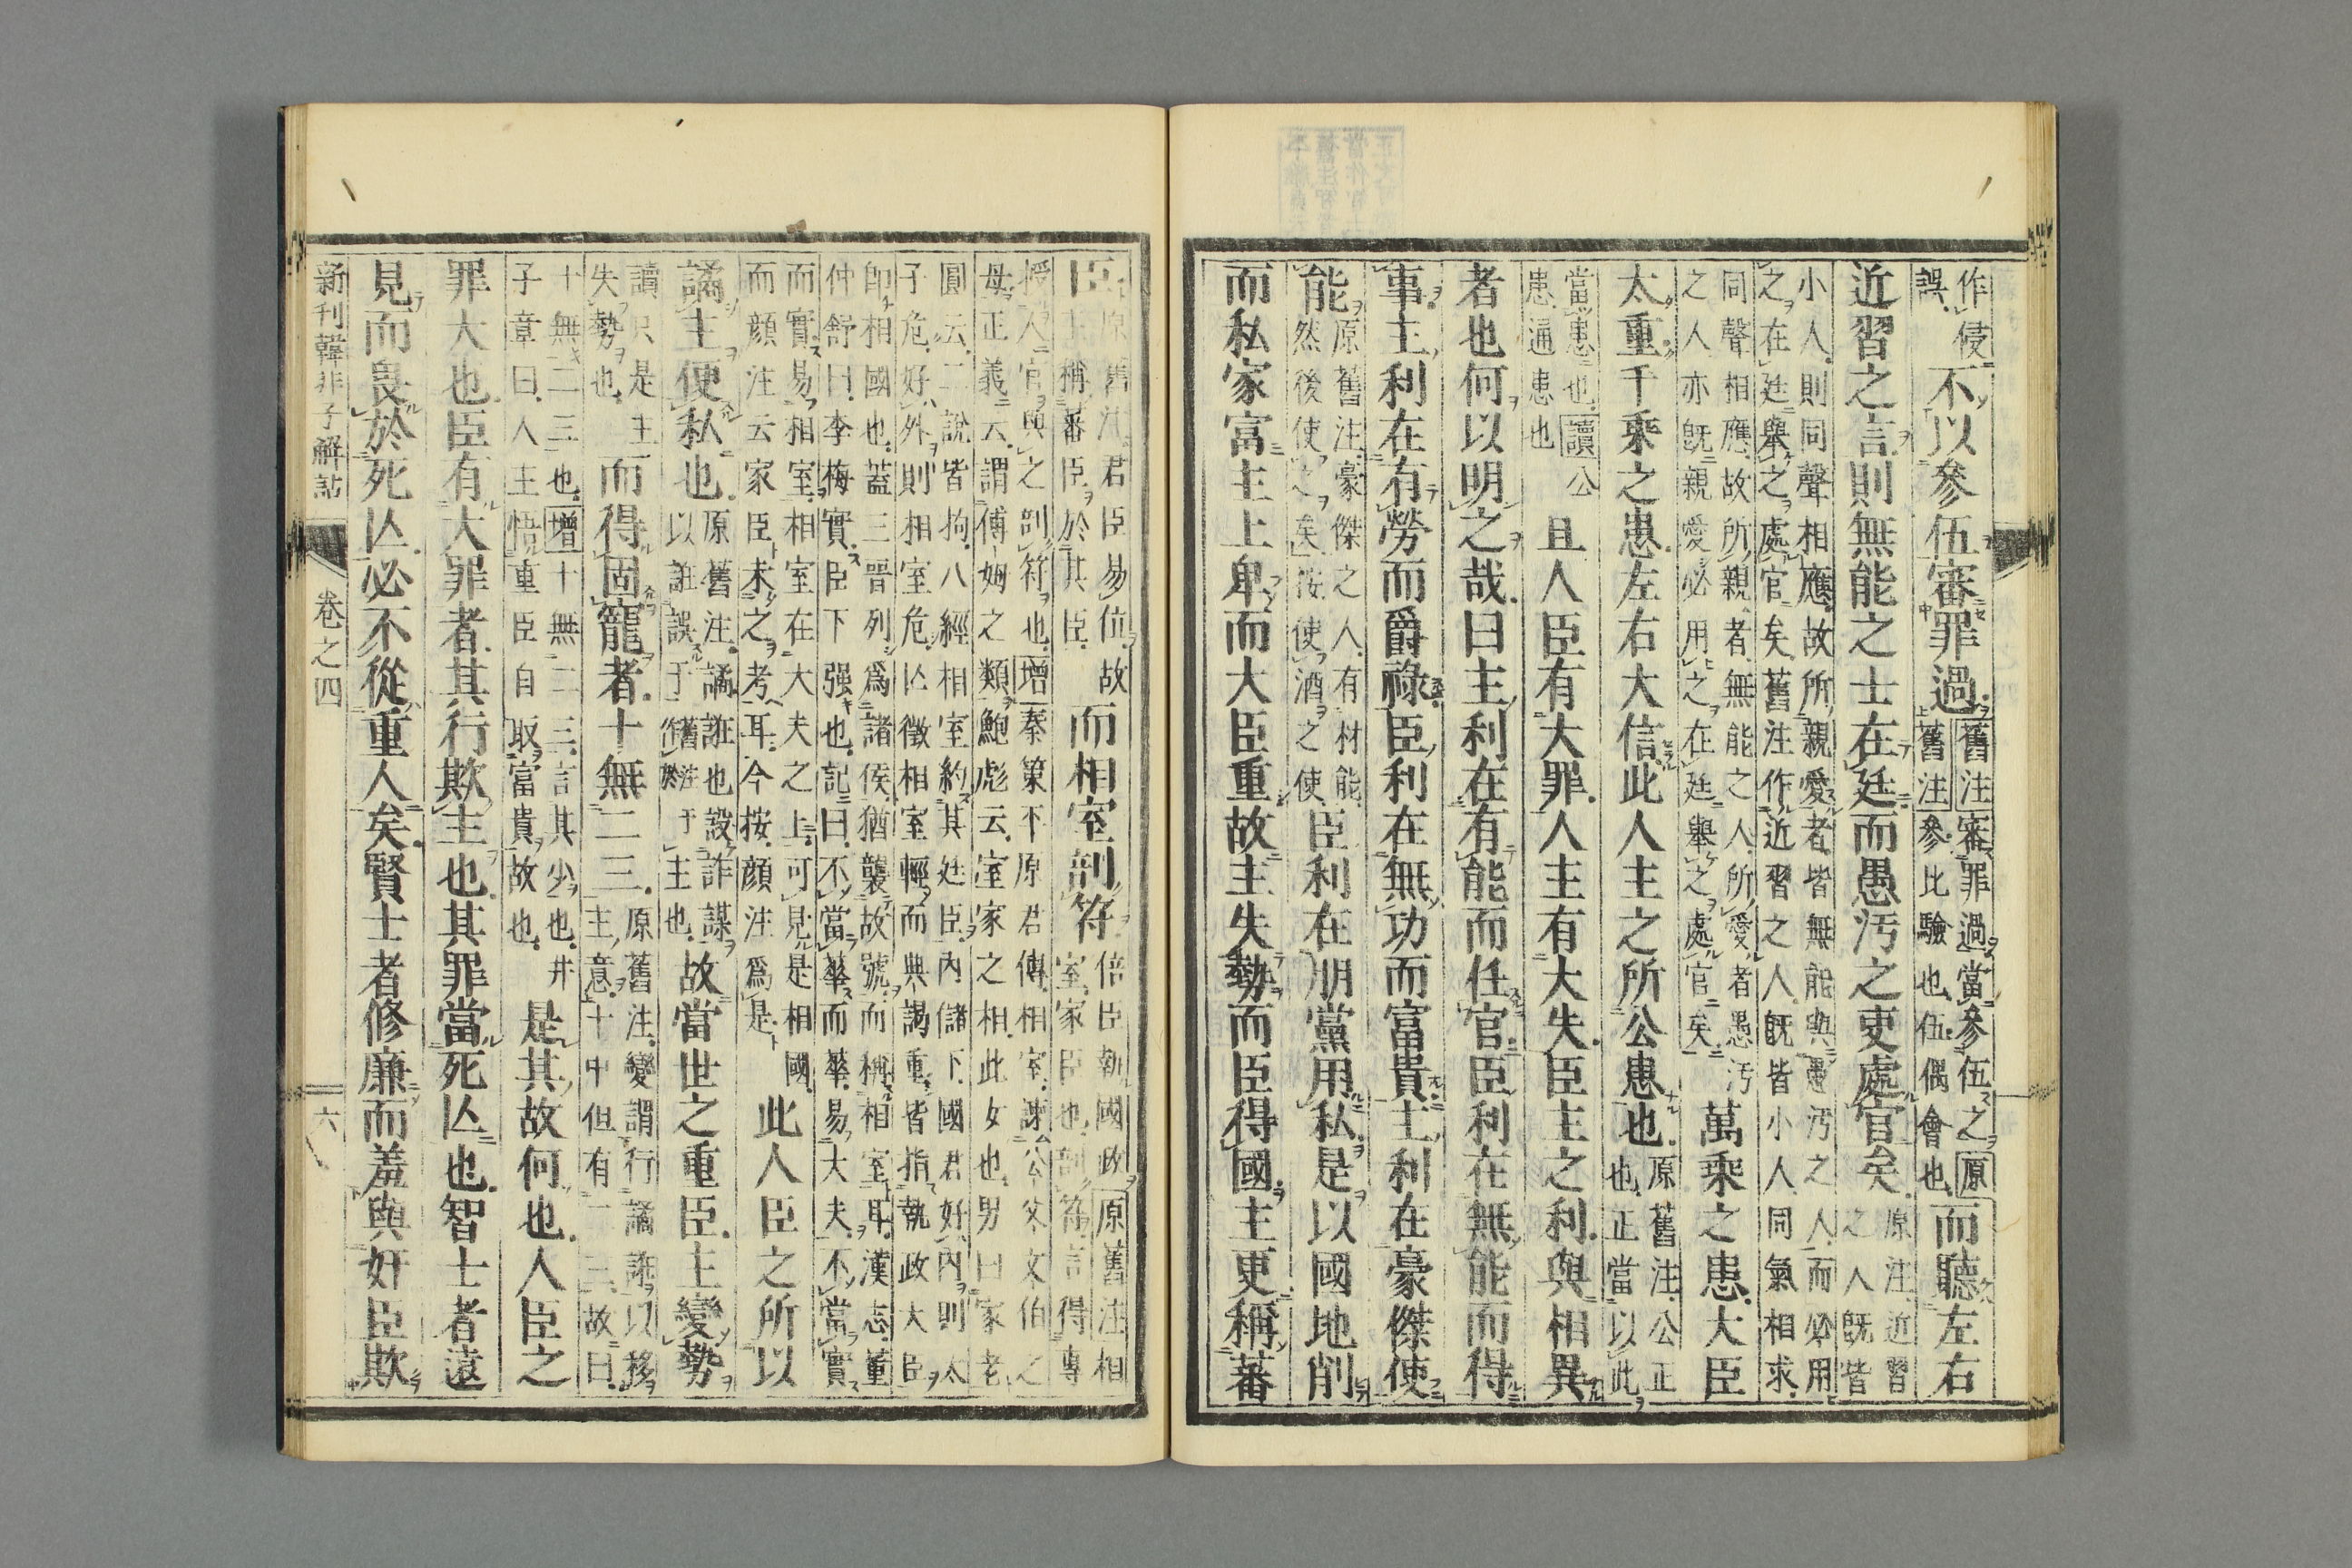 作侵誤不以參伍審罪過舊注審罪過當參伍之原舊注參比驗也伍偶會也而聽左右
近習之言則無能之士在廷而愚汚之吏處官矣原注近習之人旣皆
小人則同聲相應故所親愛者皆無能與愚汚之人而必用之在廷舉之處官矣舊注作近習之人旣皆小人同氣相求
同聲相應故所親者無能之人所愛者愚汚之人亦旣親愛必用之在廷舉之處官矣萬乘之患大臣
太重千乘之患左右大信此人主之所公患也原舊注公正也正當以此
當患也讀公患通患也且人臣有大罪人主有大失臣主之利與相異
者也何以明之哉曰主利在有能而任官臣利在無能而得
事主利在有勞而爵祿臣利在無功而富貴主利在豪傑使
能原舊注豪傑之人有材能然後使之矣按使酒之使臣利在朋黨用私是以國地削
而私家富主上卑而大臣重故主失勢而臣得國主更稱蕃
臣原舊注君臣易位故主稱蕃臣於其臣而相室剖符倍臣執國政原舊注相室家臣也剖符言得專
授人官與之剖符也增秦策不原君傳相室謀公父文伯之
母正義云謂傅姆之類鮑彪云室家之相此女也男曰家老
圓云二說皆拘八經相室約其廷臣內儲下國君好內則太
子危好外則相室危亡徵相室輕而典謁重皆指執政大臣
卽相國也蓋三晉列爲諸侯猶襲故號而稱相室耳漢志董
仲舒曰李梅實臣下强也記曰不當華而華易大夫不當實
而實易相室相室在大夫之上可見是相國而顔注云家臣未之考耳今按顔注爲是此人臣之所以
譎主便私也原舊注譎誑也設詐謀以誑誤于舊注于作於主也故當世之重臣主變勢
讀只是主失勢也而得固寵者十無二三原舊注變謂行譎誑以移主意十中但有二三故曰
十無二三也增十無二三言其少也井子章曰人主悟重臣自取富貴故也是其故何也人臣之
罪大也臣有大罪者其行欺主也其罪當死亾也智士者遠
見而畏於死亾必不從重人矣賢士者修廉而羞與奸臣欺
新刊韓非子解詁
卷之四
六